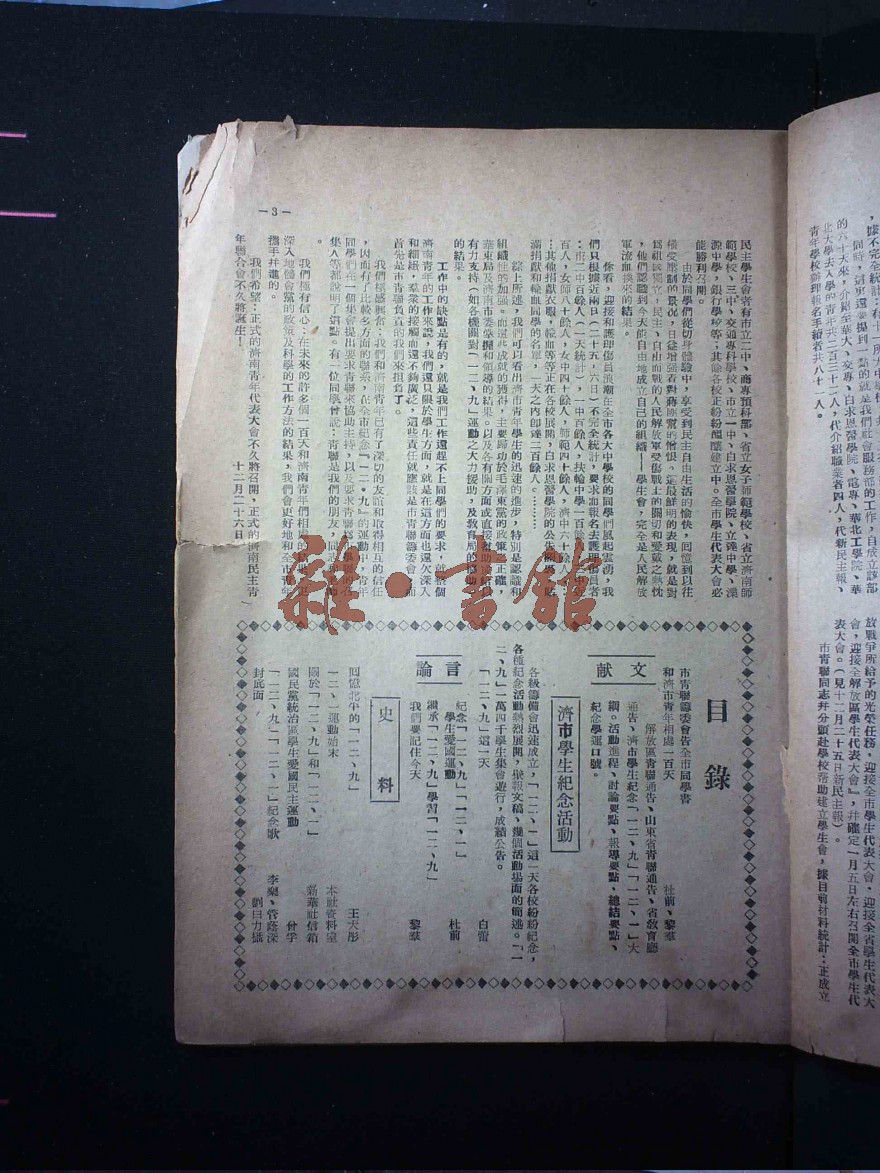 ，據不完全統計：有十一所大中學校，共
同時，這裏還要提到一點的就是我們社會服務部的工作，自成立該部
的六十天來，介紹至華大、交專、白求恩醫學院、電專、華北工學院、華
北大學去入學的青年共二百三十二人，代介紹職業者四人，代新民主報、
青年學校辦理報名手續者共八十一人。
放戰爭所給予的光榮任務，迎接全市學生代表大會，迎接全省學生代表大
會，迎接全解放區學生代表大會』，并確定一月五日左右召開全市學生代
表大會。（見十二月二十五日新民主報）。
市青聯同志并分頭赴學校帮助建立學生會，據目前材料統計：正成立
—3—
民主學生會者有市立二中、商專預科部、省立女子師範學校、省立濟南師
範學校、三中、交通專科學校、市立一中、白求恩醫學院、立達中學、濼
源中學，銀行學校等；其餘各校正紛紛醞釀建立中。全市學生代表大會必
能勝利召開。
由於同學們從切身體驗中，享受到民主自由生活的愉快，回憶到以往
橫受壓制的景况，日益增强着對蔣匪幫的憎恨。這最鮮明的表現，就是對
爲祖國獨立，民主、自由而戰的人民解放軍受傷戰士的關切和愛戴之熱忱
，他們認識到今天能自由地成立自己的組織——學生會，完全是人民解放
軍流血換來的結果。
你看，迎接和慰問傷員浪潮在全市各大中學校的同學們風起雲湧，我
們只根據近兩日（二十五，六日）不完全統計，要求面報名去護理傷員者
：市二中百餘人（一天統計），一中百餘人，扶輪中學一百餘
百人，女師八十餘人，女中四十餘人，師範四十餘人，濟中六十餘人
…其他捐獻衣服，輸血等等正在各校展開，白求恩醫學院的公告
滿捐獻和輸血同學的名單，一天之内即達二百餘人。………
綜上所述，我們可以看出濟市青年學生的迅速的進步，特別是認識和
組織性的加强。而這些成就的獲得，主要歸功於毛澤東黨的政策的正確，
華東局及濟南市委掌握和領導的結果。以及各有關方面或直接
有力支持（如各機關對「一二、九」運動之大力援助，及教育局的
的結果。
工作中的缺點是有的，就是我們工作還趕不上同學們的要求，就整個
濟南青年的工作來說，我們還只限於學生方面，就是在這方面也還欠深入
和細緻，羣衆的接觸面還不够廣泛，這些責任就應該是市青聯籌委會而
首先是市青聯負責的我們來担負了。
我們極感興奮，我們和濟南青年已有了深切的友誼和取得相互的信任
，因而有了比較多方面的聯系，在全市紀念『一二、九』的運動中，青年
同學們在一個集會提出要求青聯來協助主持，以及要求青聯
集人等都說明了這點。有一位同學曾說：青聯是我們的朋友，同志
。
我們極有信心：在未來的許多個一百天和濟南青年們相處的
深入地體會黨的政策及科學的工作方法的結果，我們會更好地和全市青年
攜手并進的。
我們希望：正式的濟南青年代表大會不久將召開，正式的濟南民主青
年聯合會不久將誕生！
十二月二十六日
目錄
文献
市青聯籌委會告全市同學書
和濟市青年相處一百天 杜前、黎羣
解放區青聯通告、山東省青聯通告、省教育廳
通告、濟市學生紀念「一二、九」「一二、一」大
綱。活動進程、討論要點、報導要點、總結要點、
紀念學運口號。
濟市學生紀念活動
各級籌備會迅速成立，「一二、一」這一天各校紛紛紀念，
各種紀念活動熱烈展開，壁報文稿、幾個活動場面的簡述。「一
二、九」一萬四千學生集會遊行，成績公告。
「一二、九」這一天 白蕾
言論
紀念「一二、九」「一二、一」
學生愛國運動 杜前
繼承「一二、九」學習「一二、九」
我們要記住今天 黎羣
史料
回憶北平的「一二、九」 王大彤
一二、一運動始末 本社資料室
關於「一二、九」和「一二、一」 新華社信箱
國民黨統治區學生愛國民主運動 曾孚
「一二、九」「一二、一」紀念歌 李樂、管蔭深
封底面 劉白力攝
雜·書館